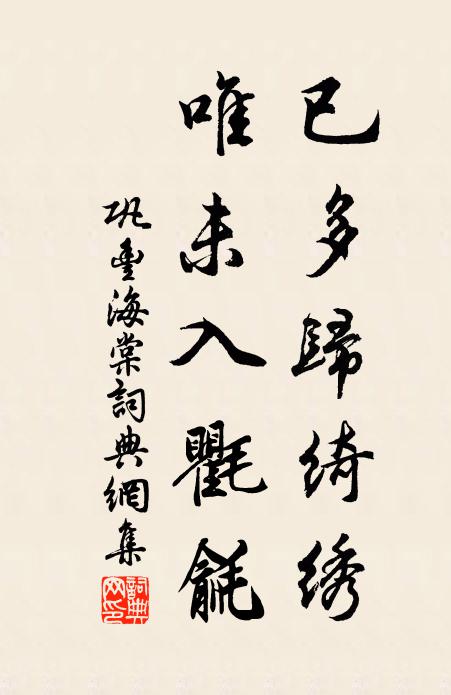 已多歸綺綉
唯未入氍毹
巩豐海棠詞典網集
詞典
网印